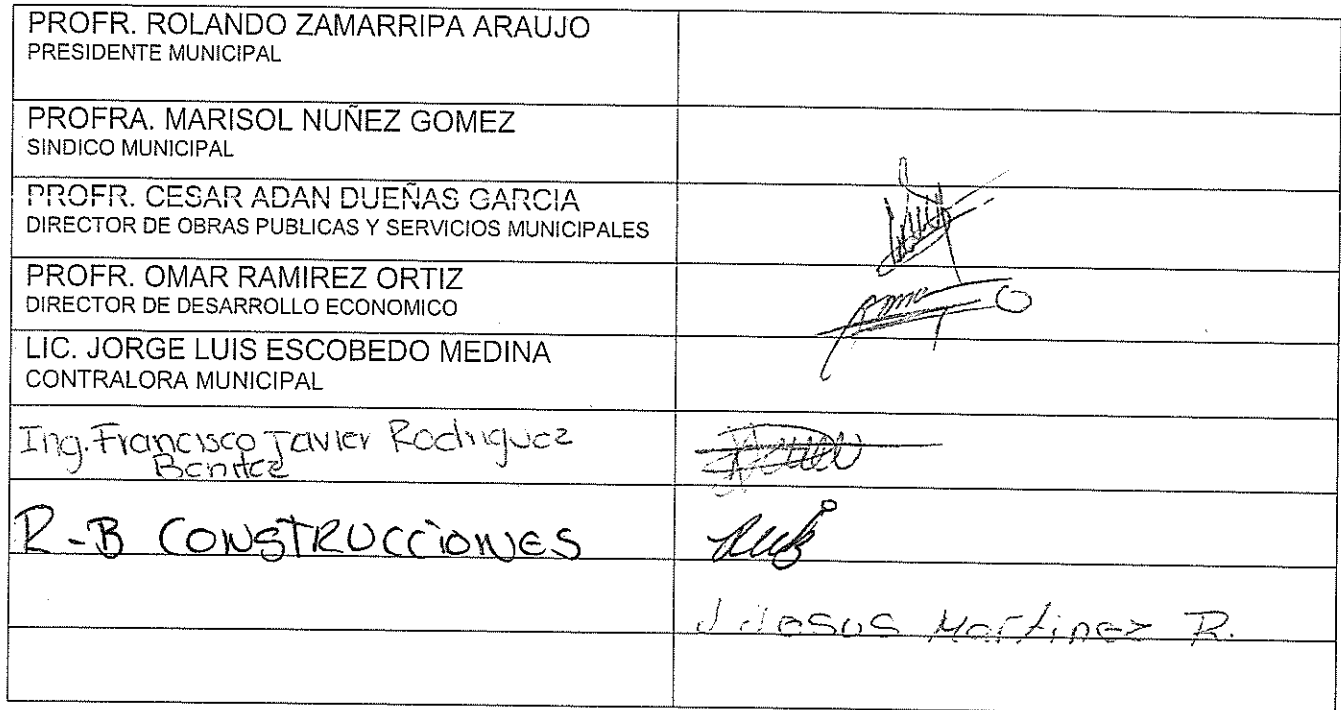 PROFR. ROLANDO ZAMARRIPA ARAUJO
PRESIDENTE MUNICIPAL
PROFRA. MARISOL NUÑEZ GOMEZ
SINDICO MUNICIPAL
PROFR. CESAR ADAN DUEÑAS GARCIA
DIRECTOR DE OBRAS PUBLICAS Y SERVICIOS MUNICIPALES
PROFR. OMAR RAMIREZ ORTIZ
DIRECTOR DE DESARROLLO ECONOMICO
LIC. JORGE LUIS ESCOBEDO MEDINA
CONTRALORA MUNICIPAL
Ing. Francisco Javier Rodriguez
Benitez
R-B CONSTRUCCIONES
J Jesus Martinez R.